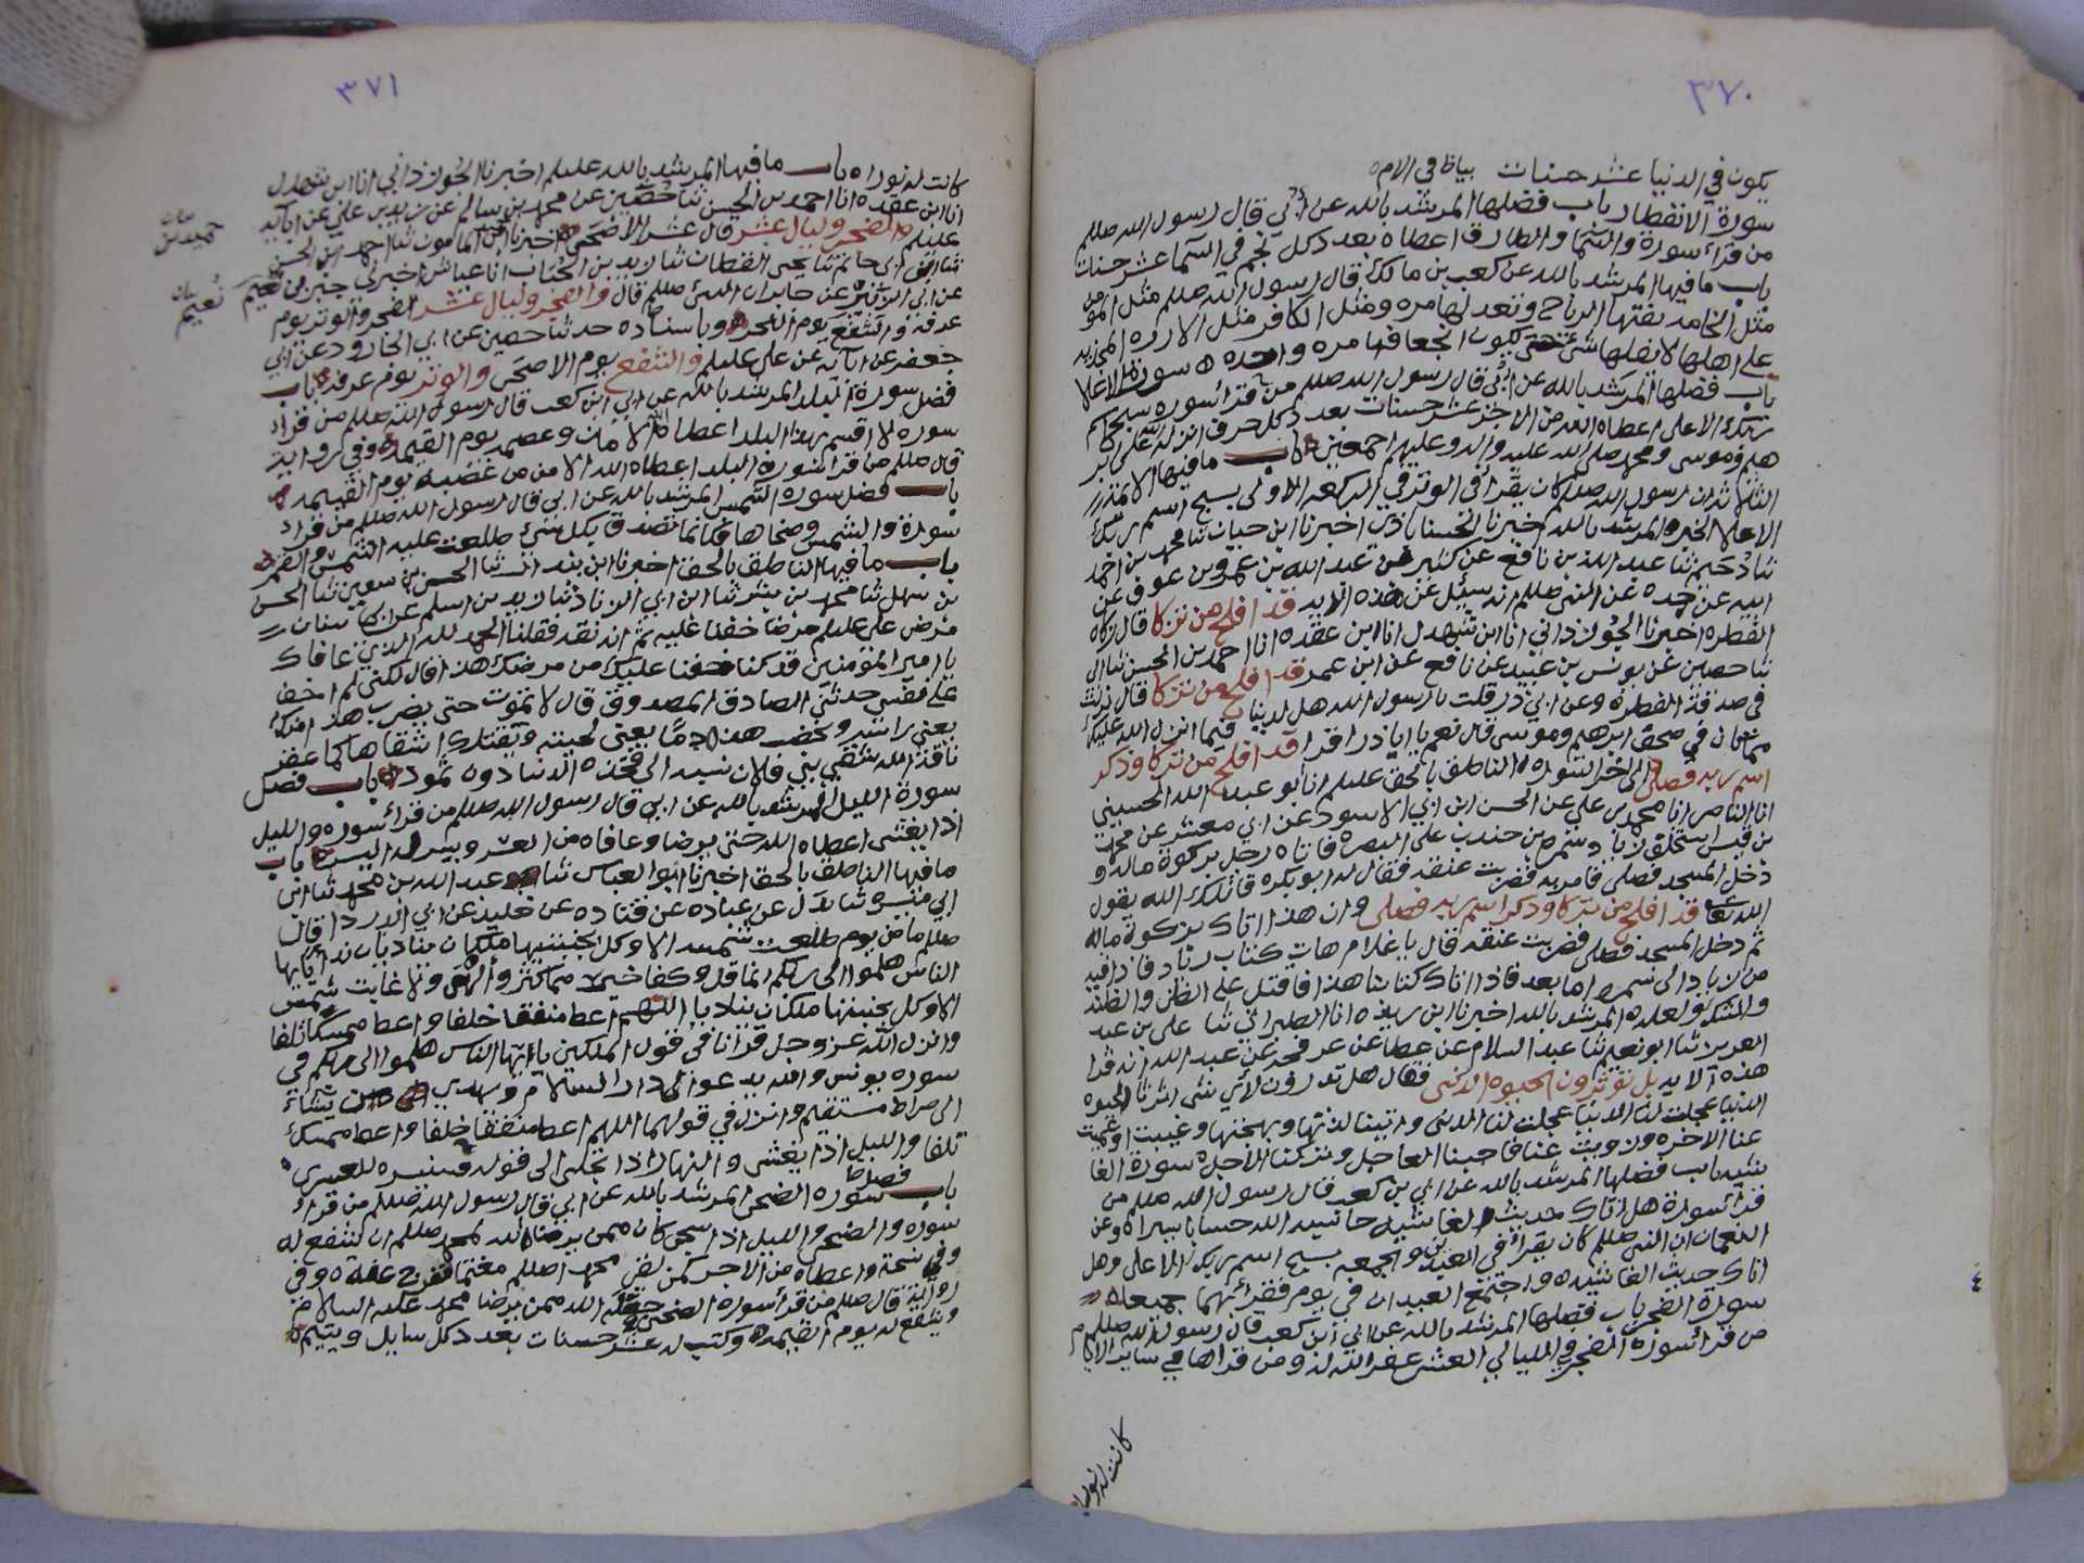 ٣٧٠
يكون في الدنيا عشر حسنات بياظ في الام
سورة الانفطار باب فضلها المرشد بالله عن ابي قال رسول الله صللم
من قرأ سورة والسما والطارق اعطاه بعدد كل نجم في السما عشر حسنات
باب ما فيها المرشد بالله عن كعب بن مالك قال رسول الله صللم مثل المؤمن
مثل الخامه تفتها الرياح وتعدلها مره ومثل الكافر مثل الارزه المجذيه
على اهلها لا يفلها شي حتى يكون انجعافها مره واحده سورة الاعلا
باب فضلها المرشد بالله عن ابي قال رسول الله صللم من قرأ سورة سبح اسم
ربك الاعلى اعطاه الله من الاجر عشر حسنات بعدد كل حرف انزله الله على ابر
هيم وموسى ومحمد صلى الله عليه واله وعليهم اجمعين باب ما فيها الائمة
الثلاثه ان رسول الله صللم كان يقرأ في الوتر في الركعه الاولى بسبح اسم ربك
الاعلا الخبر المرشد بالله اخبرنا الحسناباذي اخبرنا ابن حيان ثنا محمد بن احمد
ثنا دحيم ثنا عبد الله بن نافع عن كثير بن عبد الله بن عمرو بن عوف عن
ابيه عن جده عن النبي صللم انه سئل عن هذه الايه قد افلح من تزكا قال زكاه
الفطره اخبرنا الجوزذاني انا ابن شهدل انا ابن عقده انا احمد بن الحسن ثنا ابي
ثنا حصين عن يونس بن عبيد عن نافع عن ابن عمر قد افلح من تزكا قال نزلت
في صدقة الفطره وعن ابي ذر قلت يا رسول الله هل لدينا فيما انزل الله عليك
مما كان في صحف ابرهيم وموسى قال نعم يا ابا ذر اقرا قد افلح من تزكا وذكر
اسم ربه فصلى الى اخر السورة الناطق بالحق عليلم انا ابو عبد الله الحسيني
انا الناصر انا محمد بن علي عن الحسن ابن ابي الاسود عن ابي معشر عن محمد
بن قيس استخلف زياد سمره بن جندب على البصره فاتاه رجل بزكوة ماله و
دخل المسجد فصلى فامر به فضربت عنقه فقال له ابو بكره قاتلك الله يقول
الله تعا قد افلح من تزكا وذكر اسم ربه فصلى وان هذا اتاك بزكوة ماله
ثم دخل المسجد فصلى فضربت عنقه قال يا غلام هات كتاب زياد فاذا فيه
من زياد الى سمره اما بعد فاذا اتاك كتابنا هذا فاقتل على الظن والظنه
والمرشد بالله اخبرنا ابن ريذه انا الطبراني ثنا علي بن عبد
العزيز ثنا ابو نعيم ثنا عبد السلام عن عطا عن عرفجه عن عبد الله انه قرا
هذه الايه بل تؤثرون الحيوه الدنيا فقال هل تدرون لاي شي اثرنا الحيوه
الدنيا عجلت لنا الدنيا واتينا لذتها وبهجتها وغيبت
عنا الاخره وزويت عنا فاحبنا العاجل وتركنا الاجل سورة الغا
شيه باب فضلها المرشد بالله عن ابي بن كعب قال رسول الله صللم من
قرأ سورة هل اتاك حديث الغاشيه حاسبه الله حسابا يسيرا وعن
النعمان ان النبي صللم كان يقرأ في العيدين والجمعه بسبح اسم ربك الاعلى وهل
اتاك حديث الغاشيه واجتمع العيدان في يوم فقرأ بهما جميعا
سورة الفجر باب فضلها المرشد بالله عن ابي ابن كعب قال رسول الله صللم
من قرأ سورة الفجر في الليالي العشر غفر الله له ومن قراها في ساير الايام
كانت له نورا
٣٧١
كانت له نورا باب ما فيها المرشد بالله عليلم اخبرنا الجوزذاني انا ابن شهدل
انا ابن عقده انا احمد بن الحسن ثنا حصين عن محمد بن سالم عن زيد بن علي عن ابايه
عليلم والفجر وليال عشر قال عشر الاضحى اخبرنا ابن المأمون ثنا احمد ابن الحسن
ثنا ابن ابي حاتم ثنا يحيى القطان ثنا زيد بن الحباب انا عياش اخبرني جبر بن نعيم
عن ابي الزبير عن جابر ان النبي صللم قال والفجر وليال عشر الفجر والوتر يوم
عرفه والشفع يوم النحر وباسناده حدثنا حصين عن ابي الجارود عن ابي
جعفر عن ابائه عن علي عليلم والشفع يوم الاضحى والوتر يوم عرفه باب
فضل سورة البلد المرشد بالله عن ابي ابن كعب قال رسول الله صللم من قرأ
سورة لا اقسم بهذا البلد اعطاه الله الامان وعصمه يوم القيمه وفي رواية
قال صللم من قرأ سورة البلد اعطاه الله الامن من غضبه يوم القيمه
باب فضل سورة الشمس المرشد بالله عن ابي قال رسول الله صللم من قرأ
سورة والشمس وضحاها فكانما تصدق بكل شئ طلعت عليه الشمس والقمر
باب ما فيها الناطق بالحق اخبرنا ابن بندار ثنا الحسن بن سفين ثنا الحسن
بن سهل ثنا محمد بن بشر ثنا ابن ابي الزناد ثنا زيد بن اسلم عن ابي سنان
مرض علي عليلم مرضا خفنا عليه ثم انه نقه فقلنا الحمد لله الذي عافاك
يا امير المؤمنين قد كنا خفنا عليك من مرضك هذا قال لكني لم اخف
على نفسي حدثني الصادق المصدوق قال لا تموت حتى يضرب هذا منك
يعني راسه وتخضب هذه دما يعني لحيته ويقتلك اشقاها كما عقر
ناقة الله شقي بني فلان نسبه الى فخذه الدنيا دون ثمود باب فضل
سورة الليل المرشد بالله عن ابي قال رسول الله صللم من قرأ سورة والليل
اذا يغشى اعطاه الله حتى يرضا وعافاه من العسر ويسر له اليسر باب
ما فيها الناطق بالحق اخبرنا ابو العباس ثنا عبد الله بن محمد ثنا ابن
ابي ميسره ثنا بدل عن عباده عن قتاده عن خليد عن ابي الدردا قال
صللم ما من يوم طلعت شمسه الا وكل بجنبتيها ملكان يناديان ندا يا ايها
الناس هلموا الى ربكم انما قل وكفا خير مما كثر والهى ولا غابت شمس
الا وكل بجنبتها ملكان يناديا اللهم اعط منفقا خلفا واعط ممسكا تلفا
وانزل الله عز وجل قرانا في قول الملكين يا ايها الناس هلموا الى ربكم في
سورة يونس والله يدعو الى دار السلام ويهدي من يشاء
الى صراط مستقيم وانزل في قولهما اللهم اعط منفقا خلفا واعط ممسكا
تلفا والليل اذا يغشى والنهار اذا تجلى الى قوله فسنيسره للعسرى
باب فضل سورة الضحى المرشد بالله عن ابي قال رسول الله صللم من قرأ
سورة والضحى والليل اذا سجى كان ممن يرضاه الله لمحمد صللم ان يشفع له
وفي نسخة واعطاه من الاجر كمن لقي محمدا صللم مغتما ففرج عنه وفي
رواية قال صللم من قرأ سورة الضحى جعله الله ممن يرضا محمد عليه السلام
ويشفع له يوم القيمه وكتب له عشر حسنات بعدد كل سايل ويتيم
نعيم